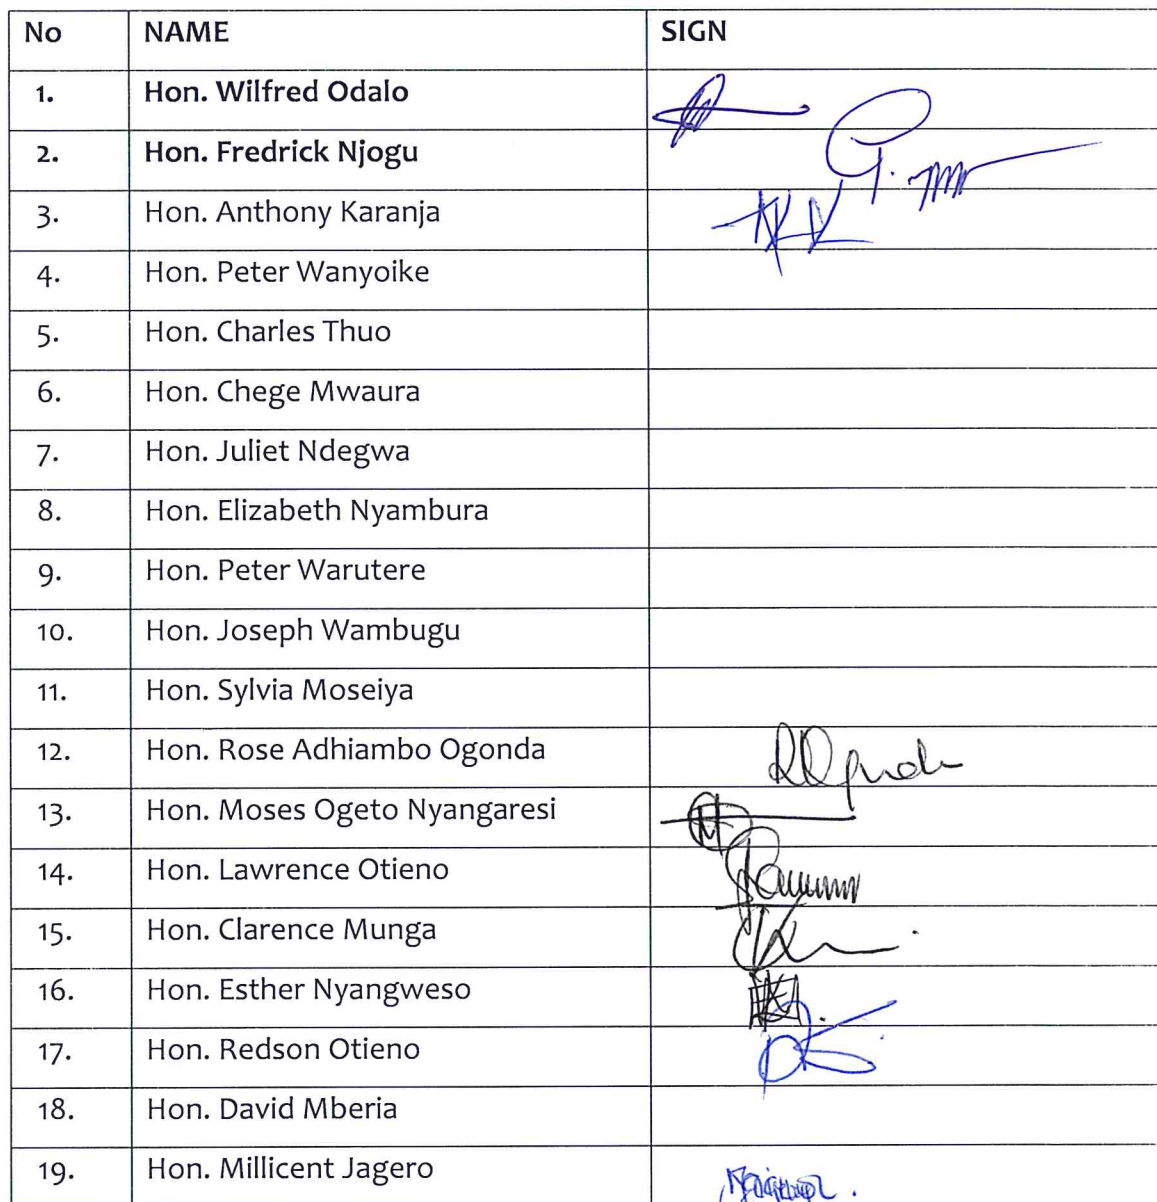 No NAME SIGN
1. Hon. Wilfred Odalo
2. Hon. Fredrick Njogu
3. Hon. Anthony Karanja
4. Hon. Peter Wanyoike
5. Hon. Charles Thuo
6. Hon. Chege Mwaura
7. Hon. Juliet Ndegwa
8. Hon. Elizabeth Nyambura
9. Hon. Peter Warutere
10. Hon. Joseph Wambugu
11. Hon. Sylvia Moseiya
12. Hon. Rose Adhiambo Ogonda
13. Hon. Moses Ogeto Nyangaresi
14. Hon. Lawrence Otieno
15. Hon. Clarence Munga
16. Hon. Esther Nyangweso
17. Hon. Redson Otieno
18. Hon. David Mberia
19. Hon. Millicent Jagero